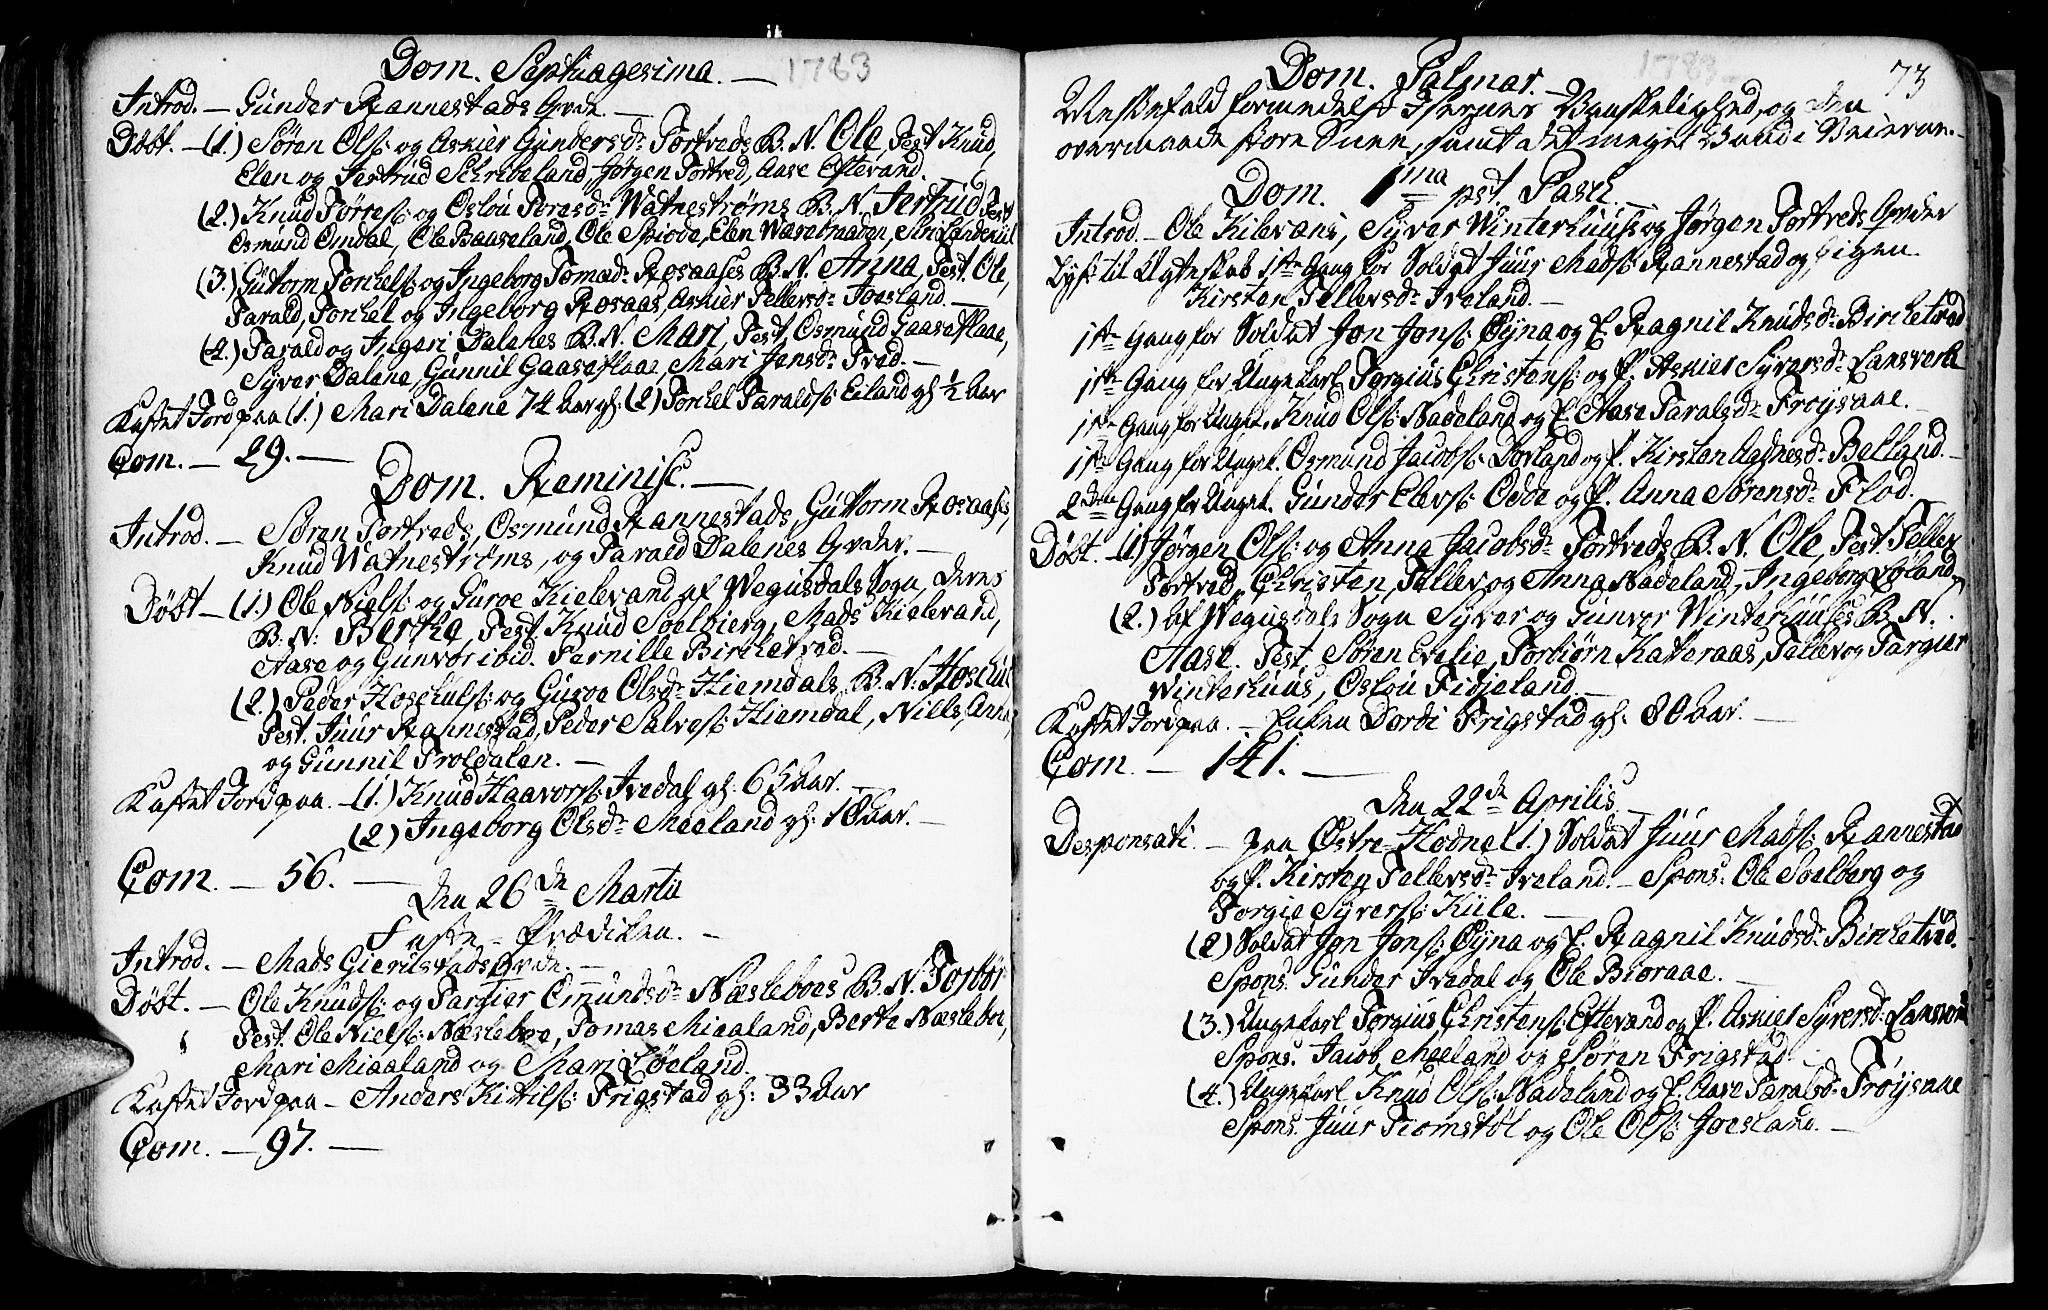 Dom. Septuagesima. — 1783
Introd. — Gunder Rannestads Qvde. —
Døbt. — (1.) Søren Ols: og Asnier Gundersd: Tortveds B. N. Ole, Test Knud,
Elen og Jertrud Schrebeland, Jørgen Tortved, Aase Eftevand.
(2.) Knud Tørres: og Oslou Toresd: Watnestrøms B. N. Jertrud Test
Osmund Omdal, Ole Baaseland, Ole Spiode, Elen Wasebraaden,
(3.) Guttorm Torkels: og Ingeborg Tomæd: Rosaases B. N. Anna, Test. Ole,
Tarald, Torchel og Ingeborg Rosaas, Asnier Tellevsd: Joesland. —
(4.) Tarald og Ingeri Dalenes B. N. Mari, Test. Osmund Gaaseflaae,
Syver Dalene, Gunnil Gaaseflaae, Mari Jensd: Tved. —
Kastet Jord paa (1.) Mari Dalene 74 Aar gl: (2) Torchel Taralds: Eiland gl ½ Aar
Com. — 29. —
Dom. Reminisc. —
Introd. — Søren Tortveds, Osmund Rannestads, Guttorm Rosaases,
Knud Watnestrøms, og Tarald Dalenes Qvder. —
Døbt — (1.) Ole Niels: og Guroe Kielevand af Wegusdals Sogn, deres
B. N: Berthe, Test. Knud Soelbierg, Mads Kielevand,
Aase og Gunvor ibid. Pernille Birchetved. —
(2.) Peder Hoschuls: og Guroe Olsd: Hiemdals B. N: Hoschul
Test. Juur Rannestad, Peder Salves: Hiemdal, Niels, Anna,
og Gunnil Troldalen. —
Kastet Jord paa. — (1.) Knud Haavors: Ivedal gl: 65 Aar. —
(2) Ingeborg Olsd: Meeland gl: 18 Aar. —
Com. — 56. —
Den 26de Martii
Faste-Prædiken. —
Introd. — Mads Gierulstads Qvde. —
Døbt. — Ole Knuds: og Targier Omundsd: Næsleboes B. N. Torbør
Test. Ole Niels: Næsleboe, Tomas Miaaland, Berte Næsleboe,
Mari Miaaland og Mari Løeland.
Kastet Jord paa — Anders Kittils: Frigstad gl: 33 Aar
Com. — 97. —
Dom. Palmar. — 1783 73
Messefald formedelst Isernes Vanskelighed, og den
overmaade store Snee, samt det meget Vand i Veiene. —
Dom. 1ma pst. Pasch. —
Introd — Ole Kilevans, Syver Winterhuus og Jørgen Tortveds Qvder
Lyst til Ægteskab 1ste Gang for Soldat Juur Mads: Rannestad og Pigen
Kirsten Tellevsd: Iveland. —
1ste Gang for Soldat Jon Jons: Øyna og P. Ragnil Knudsd: Birchetved
1ste Gang for Ungekarl Torgius Christens: og P. Asnier Syversd: Lansverk
1ste Gang for Ungek. Knud Ols: Nadeland og P. Aase Taralsd: Frøysaae. —
1ste Gang for Ungek. Osmund Jacobs: Dovland og P. Kirsten Aasnesd: Belland. —
2den Gang for Ungek. Gunder Elevs: Odde og P. Anna Sørensd: Flod.
Døbt. — (1) Jørgen Ols: og Anna Jacobsd: Tortveds B. N. Ole, Test. Tellev
Tortved, Christen, Tellev og Anna Nadeland, Ingeborg Løland.
(2.) af Wegusdals Sogn Syver og Gunvor Winterhuuses B. N.
Aase. Test. Søren Evelie, Torbiørn Katteraas, Tellev og Targier
Winterhuus, Oslou Fidjeland. —
Kastet Jord paa. — Enken Dordi Frigstad gl: 80 Aar. —
Com. — 141. —
Den 22de Aprilis —
Desponsati. — paa Østre-Hodne (1.) Soldat Juur Mads: Rannestad
og P. Kirsten Tellevsd: Iveland. — Spons: Ole Soelberg og
Torgie Syvers: Kiile. —
(2) Soldat Jon Jons: Øyna og P. Ragnil Knudsd: Birchetved.
Spons. Gunder Ivedal og Ole Bioraae. —
(3.) Ungekarl Torgius Christens: Eftevand og P. Asnier Syversd: Lansverk
Spons. Jacob Meeland og Søren Frigstad. —
(4.) Ungekarl Knud Ols: Nadeland og P. Aase Taralsd: Frøysaae
Spons. Juur Tiomstøl og Ole Ols: Joesland. —